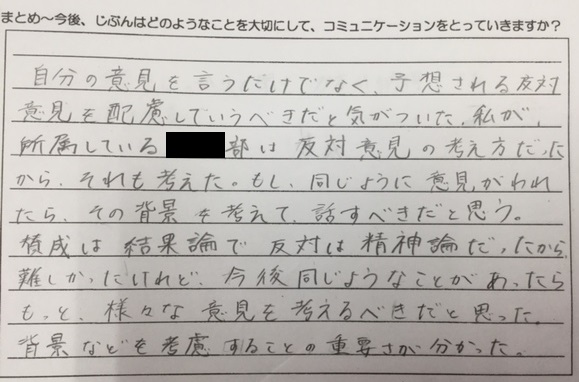 まとめ～今後、じぶんはどのようなことを大切にして、コミュニケーションをとっていきますか？
自分の意見を言うだけでなく、予想される反対
意見を配慮していうべきだと気がついた。私が、
所属している部は反対意見の考え方だった
から、それも考えた。もし、同じように意見がわれ
たら、その背景を考えて、話すべきだと思う。
賛成は結果論で反対は精神論だったから
難しかったけれど、今後同じようなことがあったら
もっと、様々な意見を考えるべきだと思った。
背景などを考慮することの重要さが分かった。